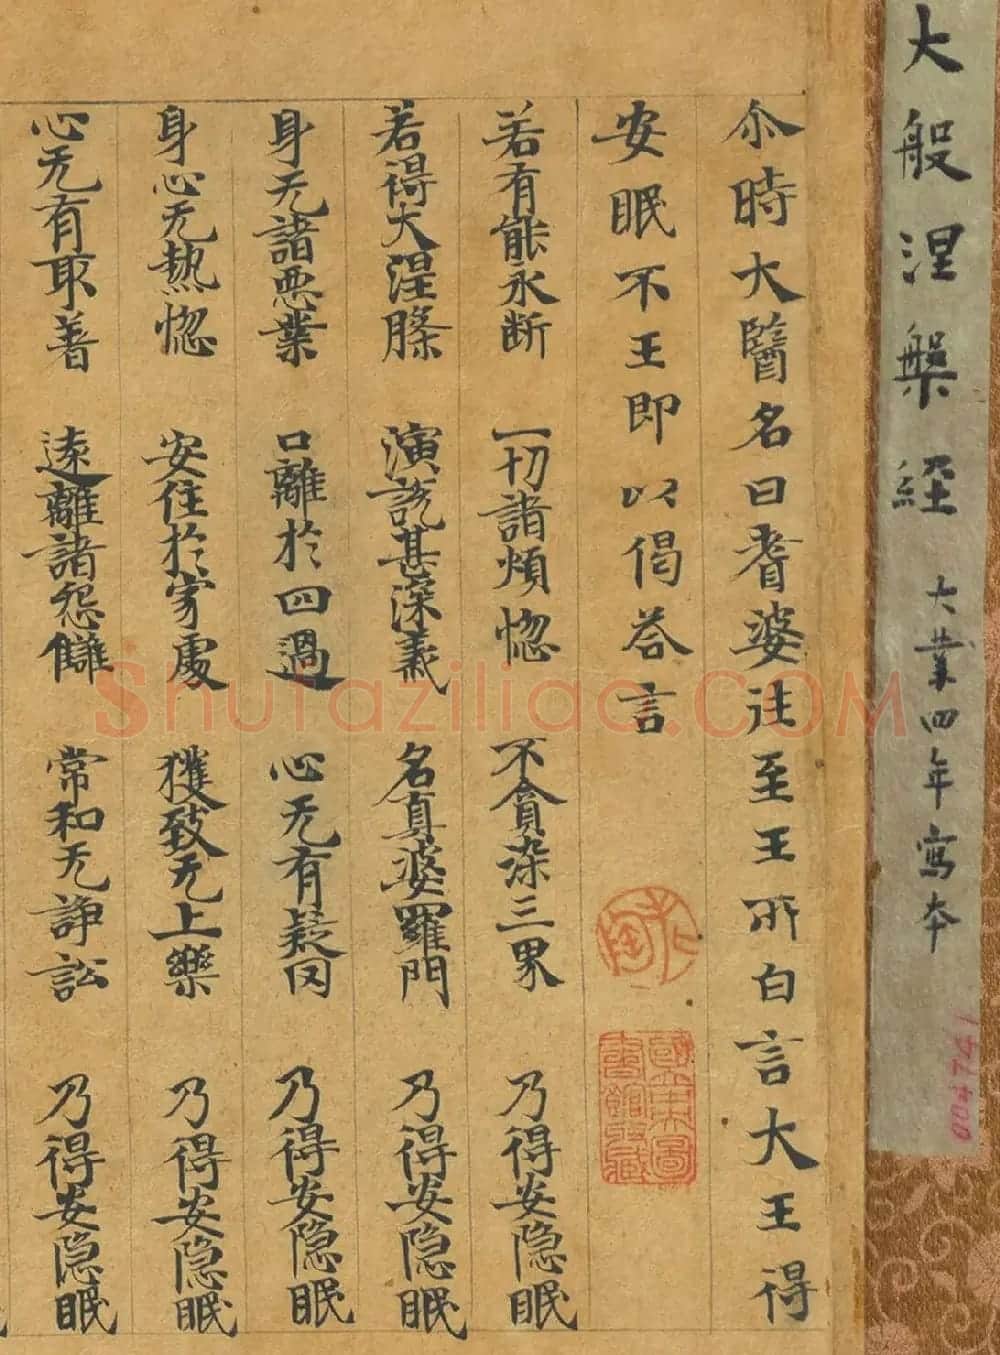 大般涅槃经 大業四年寫本
004741
尒時大醫名曰耆婆往至王所白言大王得
安眠不王即以偈荅言
若有能永断 一切諸煩惚 不貪染三界 乃得安隐眠
若得大涅槃 演説甚深義 名真婆羅門 乃得安隐眠
身无諸悪業 口離於四過 心无有疑冈 乃得安隐眠
身心无热惚 安住於家處 獲致无上樂 乃得安隐眠
心无有取著 遠離諸怨讎 常和无諍訟 乃得安隐眠
國立中央圖書館收藏
Shufaziliao.COM